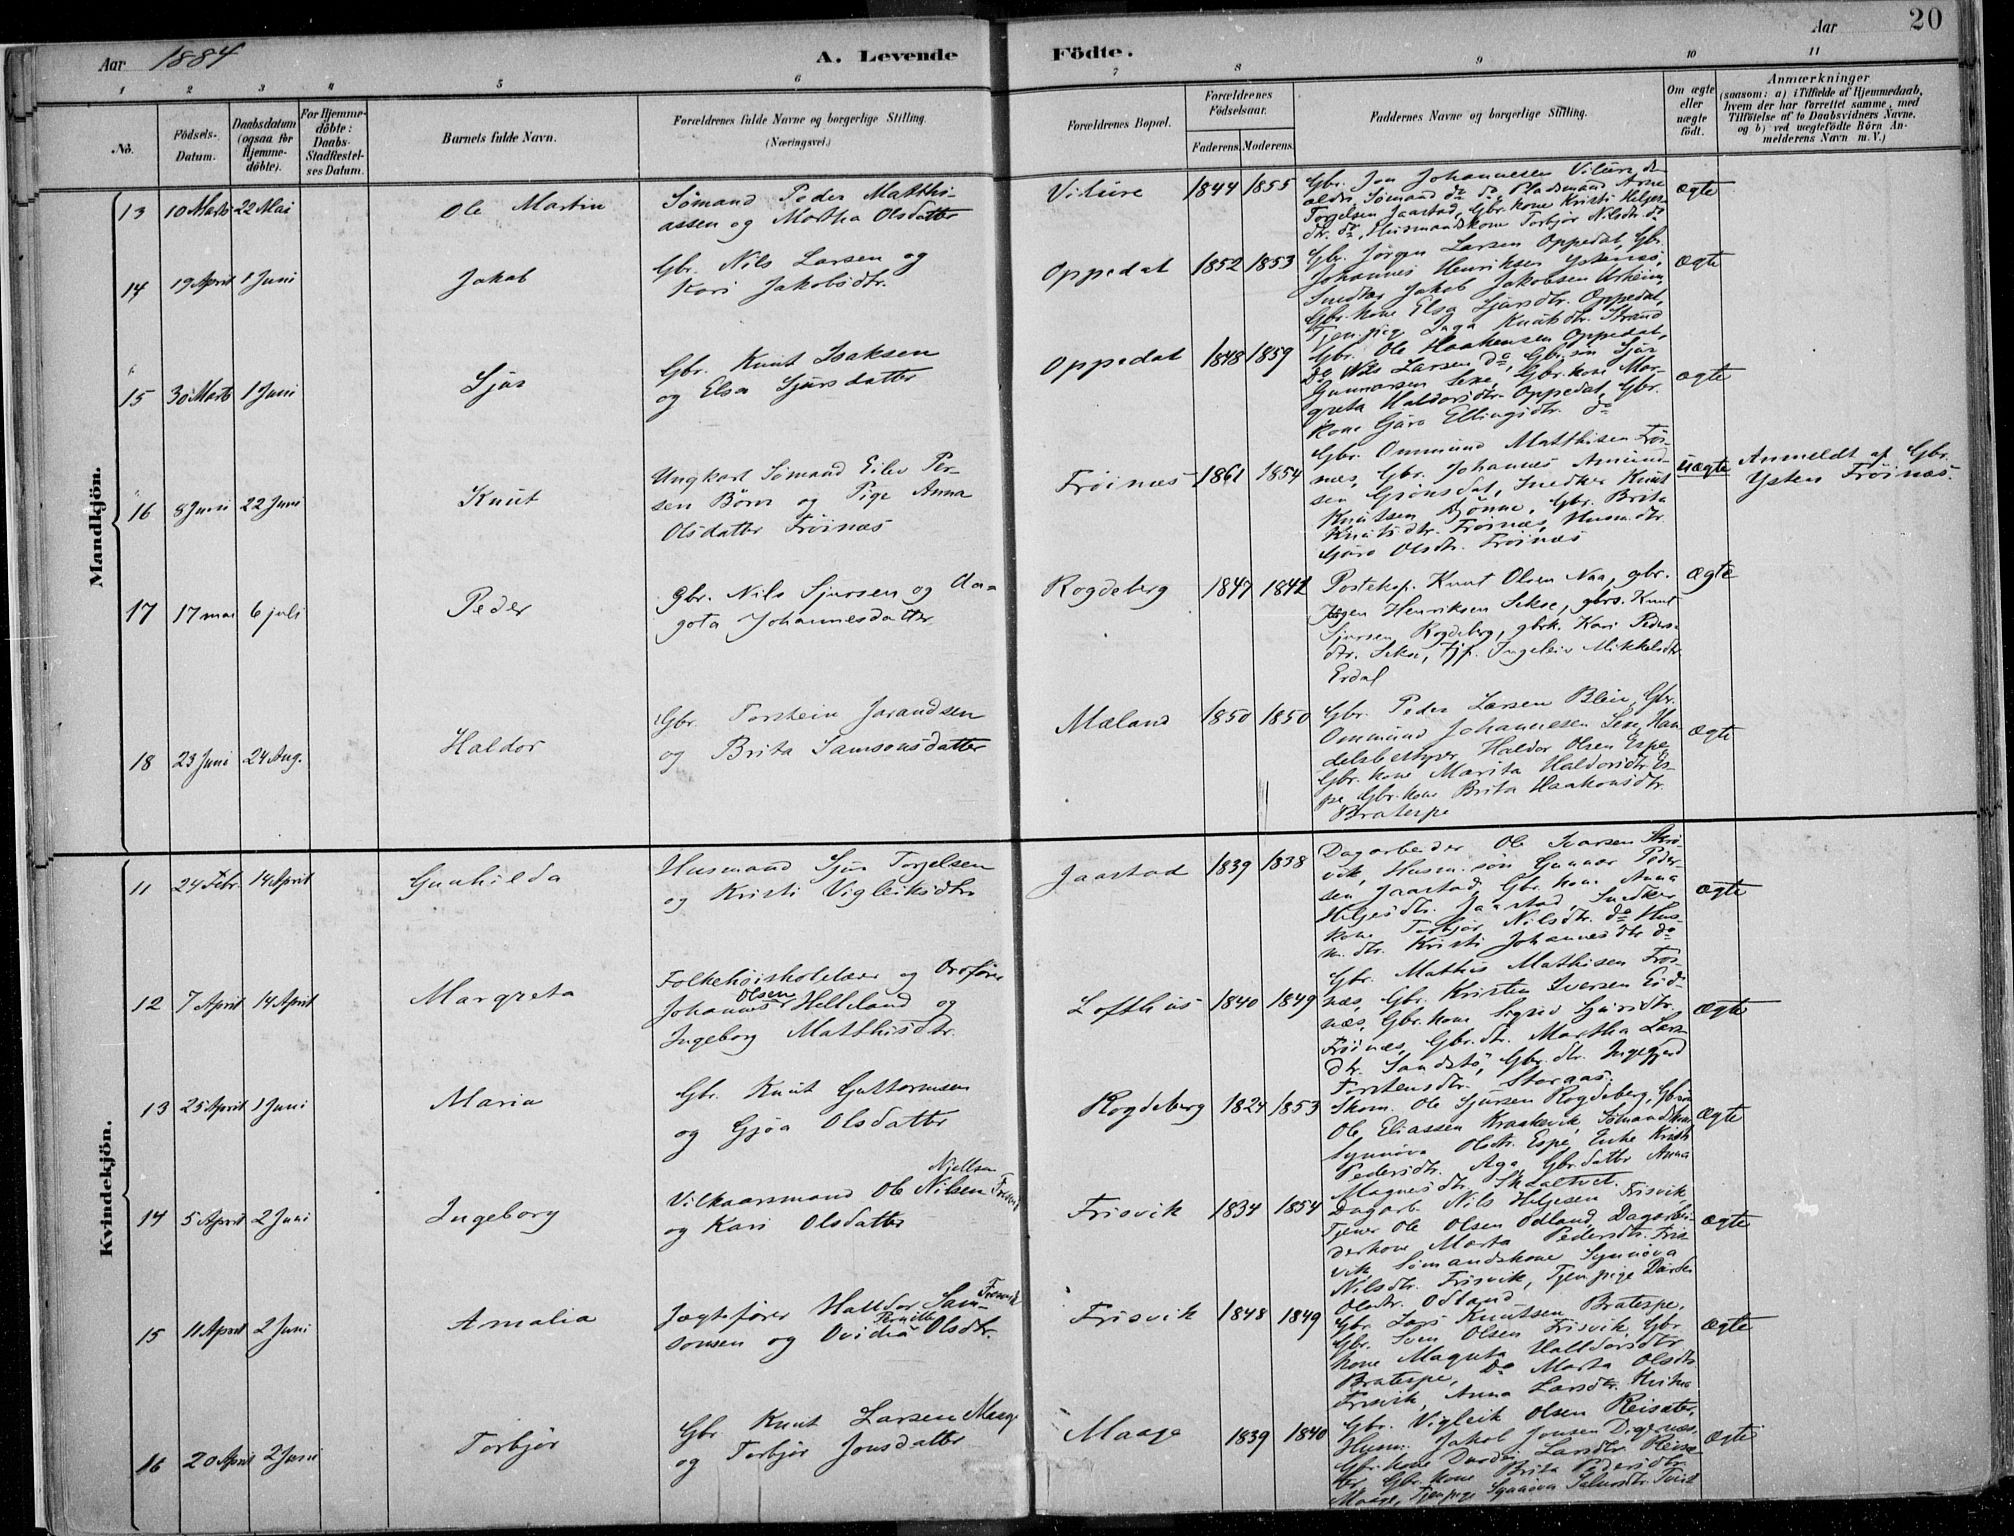 Aar 1884
A. Levende
Födte.
Aar
20
1 2 3 4 5 6 7 8 9 10 11
No.
Födsels-Datum.
Daabsdatum (ogsaa for Hjemmedöbte).
For Hjemmedöbte: Daabs-Stadfæstelses Datum.
Barnets fulde Navn.
Forældrenes fulde Navne og borgerlige Stilling.
(Næringsvei.)
Forældrenes Bopæl.
Forældrenes Födselsaar.
Faderens. Moderens.
Faddernes Navne og borgerlige Stilling.
Om ægte eller uægte födt.
Anmærkninger
(saasom: a) i Tilfælde af Hjemmedaab,
hvem der har forrettet samme, med
Tilföielse af to Daabsvidners Navne.
og b) ved uægtefödte Börn Anmelderens Navn m. V.)
Mandkjön.
13 10 Marts 22 Mai Ole Martin
Sømand Peder Matthiassen og Martha Olsdatter
Vikure 1844 1855
Gbr. Jon Johannesen Vikure,
Sømand do do, Pladsmand Arne
Torjelsen Jaastad, Gbr. kone Kristi Heljesdtr. do, Husmandskone Torbjør Nilsdtr. do
ægte
14 19 April 1 Juni Jakob
Gbr. Nils Larsen og
Kari Jakobsdtr.
Oppedal 1852 1853
Gbr. Jørgen Larsen Oppedal, Gbr.
Johannes Henriksen Ystenæs,
Snedker Jakob Jakobsen Urheim,
Gbr. kone Elsa Sjursdtr. Oppedal,
Tjen. pige Inga Knutsdtr. Strand
ægte
15 30 Marts 1 Juni Sjur
Gbr. Knut Isaksen
og Elsa Sjursdatter
Oppedal 1848 1859
Gbr. Ole Haakensen Oppedal,
Do Nils Larsen do, Gbr. søn Sjur
Gunnarsen Sexe, Gbr. kone Margreta Haldorsdtr. Oppedal, Gbr.
kone Gjøro Ellingsdtr. do
ægte
16 8 Juni 22 Juni Knut
Ungkarl Sømand Eilev Persen Børve og Pige Anna
Olsdatter Frøinæs
Frøinæs 1861 1854
Gbr. Ommund Matthisen Frøinæs, Gbr. Johannes Amundsen Grønsdal, Snedker Knut
Knutsen Djønne, Gbr. Brita
Knutsdtr. Frøinæs, Husm. dtr.
Gjøro Olsdtr. Frøinæs
uægte
Anmeldt af Gbr.
Ysten Frøinæs.
17 17 mai 6 juli Peder
Gbr. Nils Sjursen og Aagota Johannesdatter
Rogdeberg 1847 1842
Postexp. Knut Olsen Naa, gbr.
Jørgen Henriksen Sekse, gbrs. Knut
Sjursen Rogdeberg, gbrk. Kari Pedersdtr. Sekse, Tjp. Ingeleiv Mikkelsdtr
Erdal
ægte
18 23 Juni 24 Aug. Haldor
Gbr. Torstein Jarandsen
og Brita Samsonsdatter
Mæland 1850 1850
Gbr. Peder Larsen Bleie, Gbr.
Ommund Johannesen Sexe, Handelsbestyrer Haldor Olsen Espe
Gbr. kone Marita Haldorsdtr. Espe, Gbr. kone Brita Haakonsdtr.
Bratespe
ægte
Kvindekjön.
11 24 Febr. 14 April Gunhilda
Husmand Sjur Torjelsen
og Kristi Vigleiksdtr.
Jaastad 1839 1838
Dagarbeider Ole Ivarsen Skrivik, Husm. søn Gunnar Pedersen Jaastad, Gbr. kone Anna
Heljesdtr. Jaastad, Snedker
kone Torbjør Nilsdtr. do Husm. dtr. Kristi Johannesdtr do
ægte
12 7 April 14 April Margreta
Folkehøiskolelærer og Ordfører
Johannes Olsen Helleland og
Ingeborg Matthisdtr.
Lofthus 1840 1849
Gbr. Mathis Mathisen Frøinæs, Gbr. Kristen Iversen Eidnæs, Gbr. kone Sigrid Sjursdtr.
Frøinæs, Gbr. dtr. Martha Larsdtr. Sandstø, Gbr. dtr. Ingegjerd
Torstensdtr. Storaas.
ægte
13 25 April 1 Juni Maria
Gbr. Knut Guttormsen
og Gjøa Olsdatter
Rogdeberg 1824 1853
Skom. Ole Sjursen Rogdeberg, Gbrsøn
Ole Eliassen Kraakevik, Sømandskone
Synnøva Olsdtr. Espe, Enke Kristi
Pedersdtr. Aga, Gbr. datter Anna
Magnesdtr. Skaaltvet.
ægte
14 5 April 2 Juni Ingeborg
Vilkaarsmand Ole Nilsen Njellsen Fresvik
og Kari Olsdatter
Frisvik 1834 1854
Dagarb. Nils Helgesen Frisvik,
Tjener Ole Olsen Odland, Dagarbeiderkone Marta Pedersdtr. Frisvik, Sømandskone Synnøva
Nilsdtr. Frisvik, Tjen. pige Dordei
Olsdtr. Odland
ægte
15 11 April 2 Juni Amalia
Jægtefører Halldor Samsonsen Fresvik og Ovidia Pernille Olsdtr.
Frisvik 1848 1849
Gbr. Lars Knutsen Bratespe,
Gbr. Sven Olsen Frisvik, Gbr.
kone Magnta Halldorsdtr
Bratespe, Do Marta Olsdtr.
Frisvik, Anna Larsdtr.
ægte
16 20 April 2 Juni Torbjør
Gbr. Knut Larsen Maage
og Torbjør Jonsdatter
Maage 1839 1840
Gbr. Vigleik Olsen Reisæter,
Husm. Jakob Jonsen Digrenæs,
Gbr. kone Durdei Larsdtr. Reisæter, Gbr. kone Brita Pedersdtr.
Maage, Tjenpige Synnøva
ægte